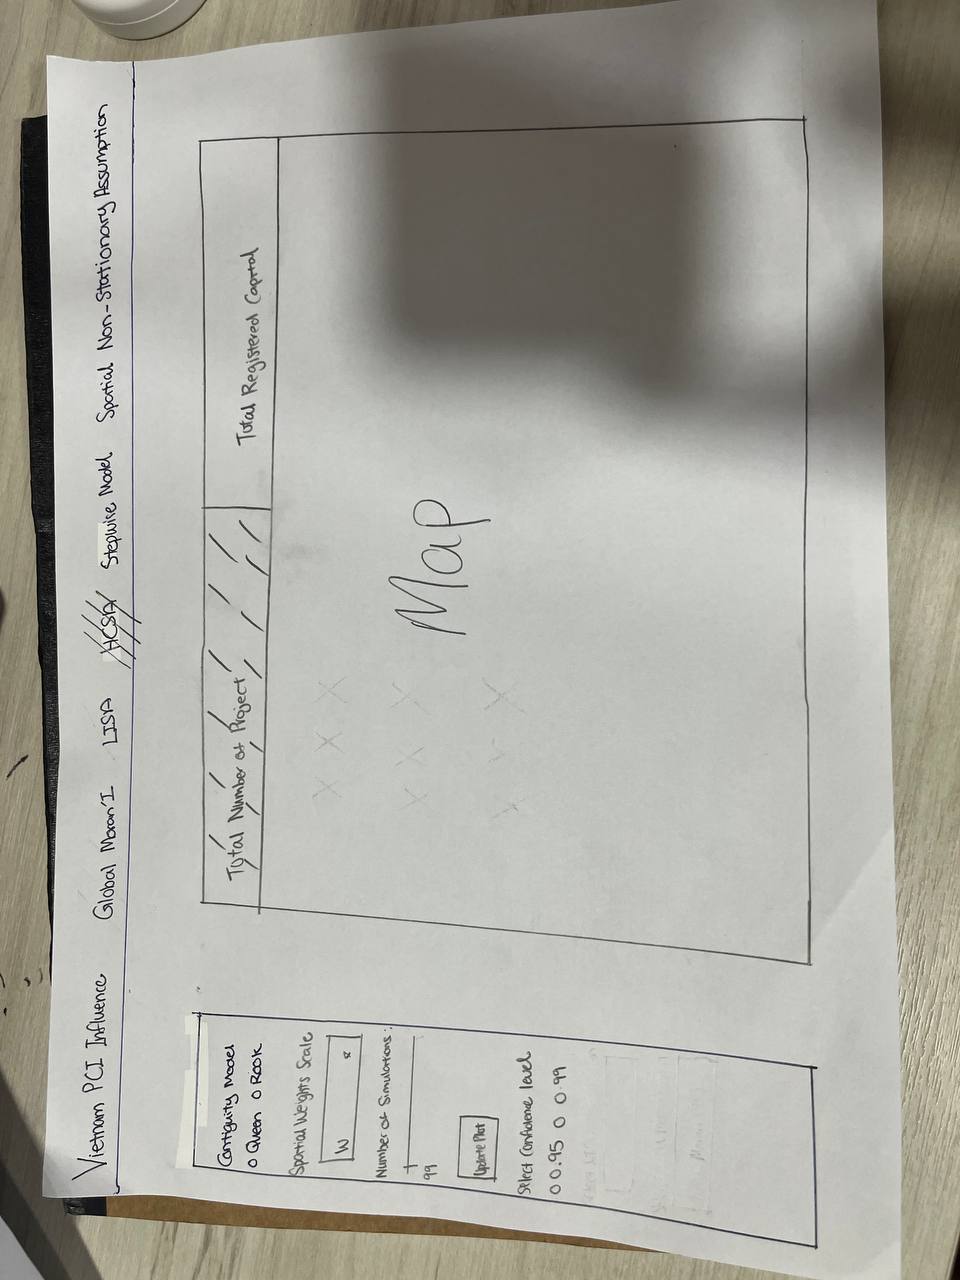 Vietnam PCI Influence Global Moran'I LISA HCSA Stepwise Model Spatial Non-Stationary Assumption
Contiguity Model
o Queen o Rook
Spatial Weights Scale
W
Number of Simulations:
99
Update Plot
Select Confidence level
o 0.95 o 0.99
Total Number of Project
Total Registered Capital
Map